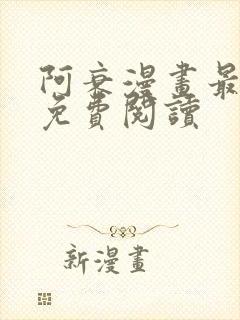 阿衰漫畫最
免費閱讀
新漫畫